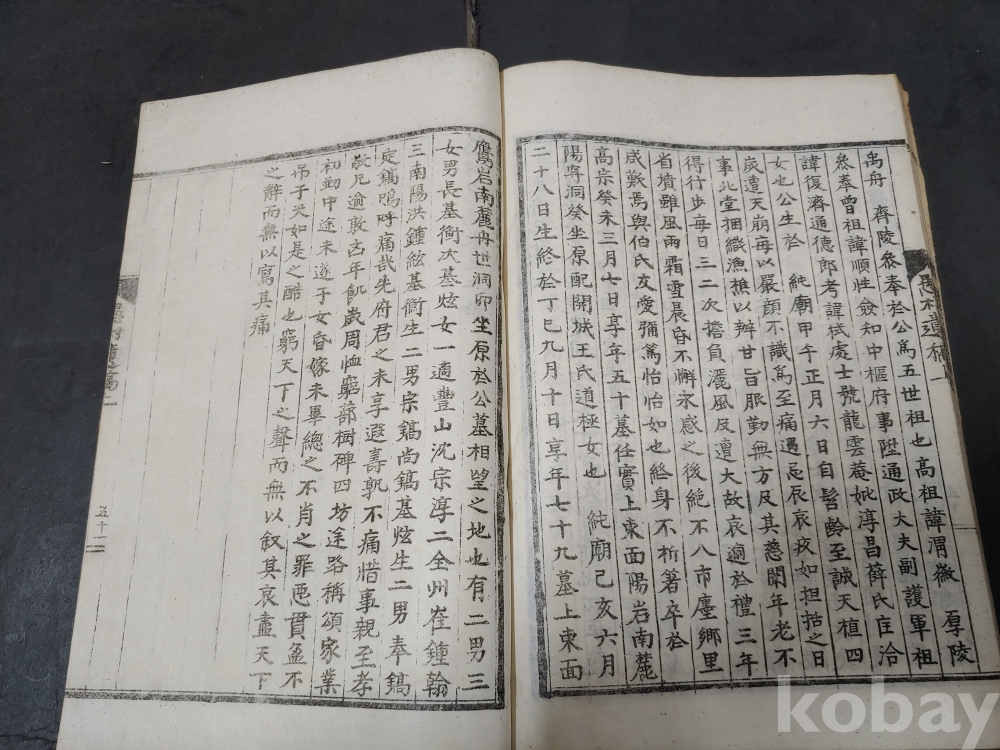 禹舟 齊陵參奉於公爲五世祖也高祖諱渭徵 厚陵
參奉曾祖諱順性僉知中樞府事陞通政大夫副護軍祖
諱復濟通德郎考諱栻處士號龍雲菴妣淳昌薛氏庄洽
女也公生於 純廟甲午正月六日自髫齡至誠天植四
歲遭天崩每以嚴顔不識爲至痛遇忌辰哀疚如担括之日
事北堂捆織漁樵以辨甘旨服勤無方及其慈闈年老不
得行步每日三二次擔負灑風及遭大故哀逈於禮三年
省墳雖風雨霜雪晨昏不懈永感之後絶不入市廛鄉里
咸難焉與伯氏友愛彌篤怡怡如也終身不析箸卒於
高宗癸未三月七日享年五十墓任實上東面陽岩南麓
陽尋洞癸坐原配開城王氏道極女也 純廟己亥六月
二十八日生終於丁巳九月十日享年七十九墓上東面
愚村遺稿一
鷹岩南麓冉世洞卯坐原於公墓相望之地也有二男三
女男長基衡次基炫女一適豐山沈宗淳二全州崔鍾翰
三南陽洪鍾絃基衡生二男宗鎬尚鎬基炫生二男奉鎬
定鎬嗚呼痛哉先府君之未享遐壽孰不痛惜事親至孝
敬兄逾敦凶年飢歲周恤窮蔀樹碑四坊途路稱頌家業
初刱中途未遂子女昏嫁未畢總之不肖之罪惡貫盈不
吊于天如是之酷也窮天下之聲而無以叙其哀盡天下
之辭而無以寫其痛
五十二